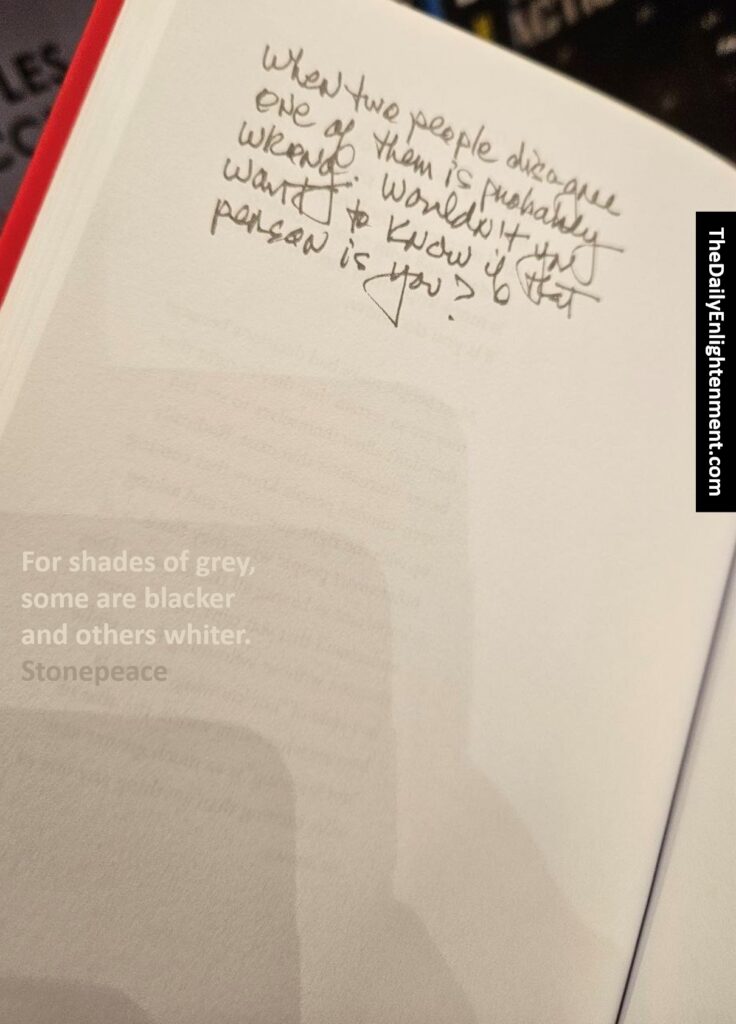 When two people disagree
one of them is probably
wrong. Wouldn't you
want to know if that
person is you?
For shades of grey,
some are blacker
and others whiter.
Stonepeace
TheDailyEnlightenment.com
ACTIO
LES